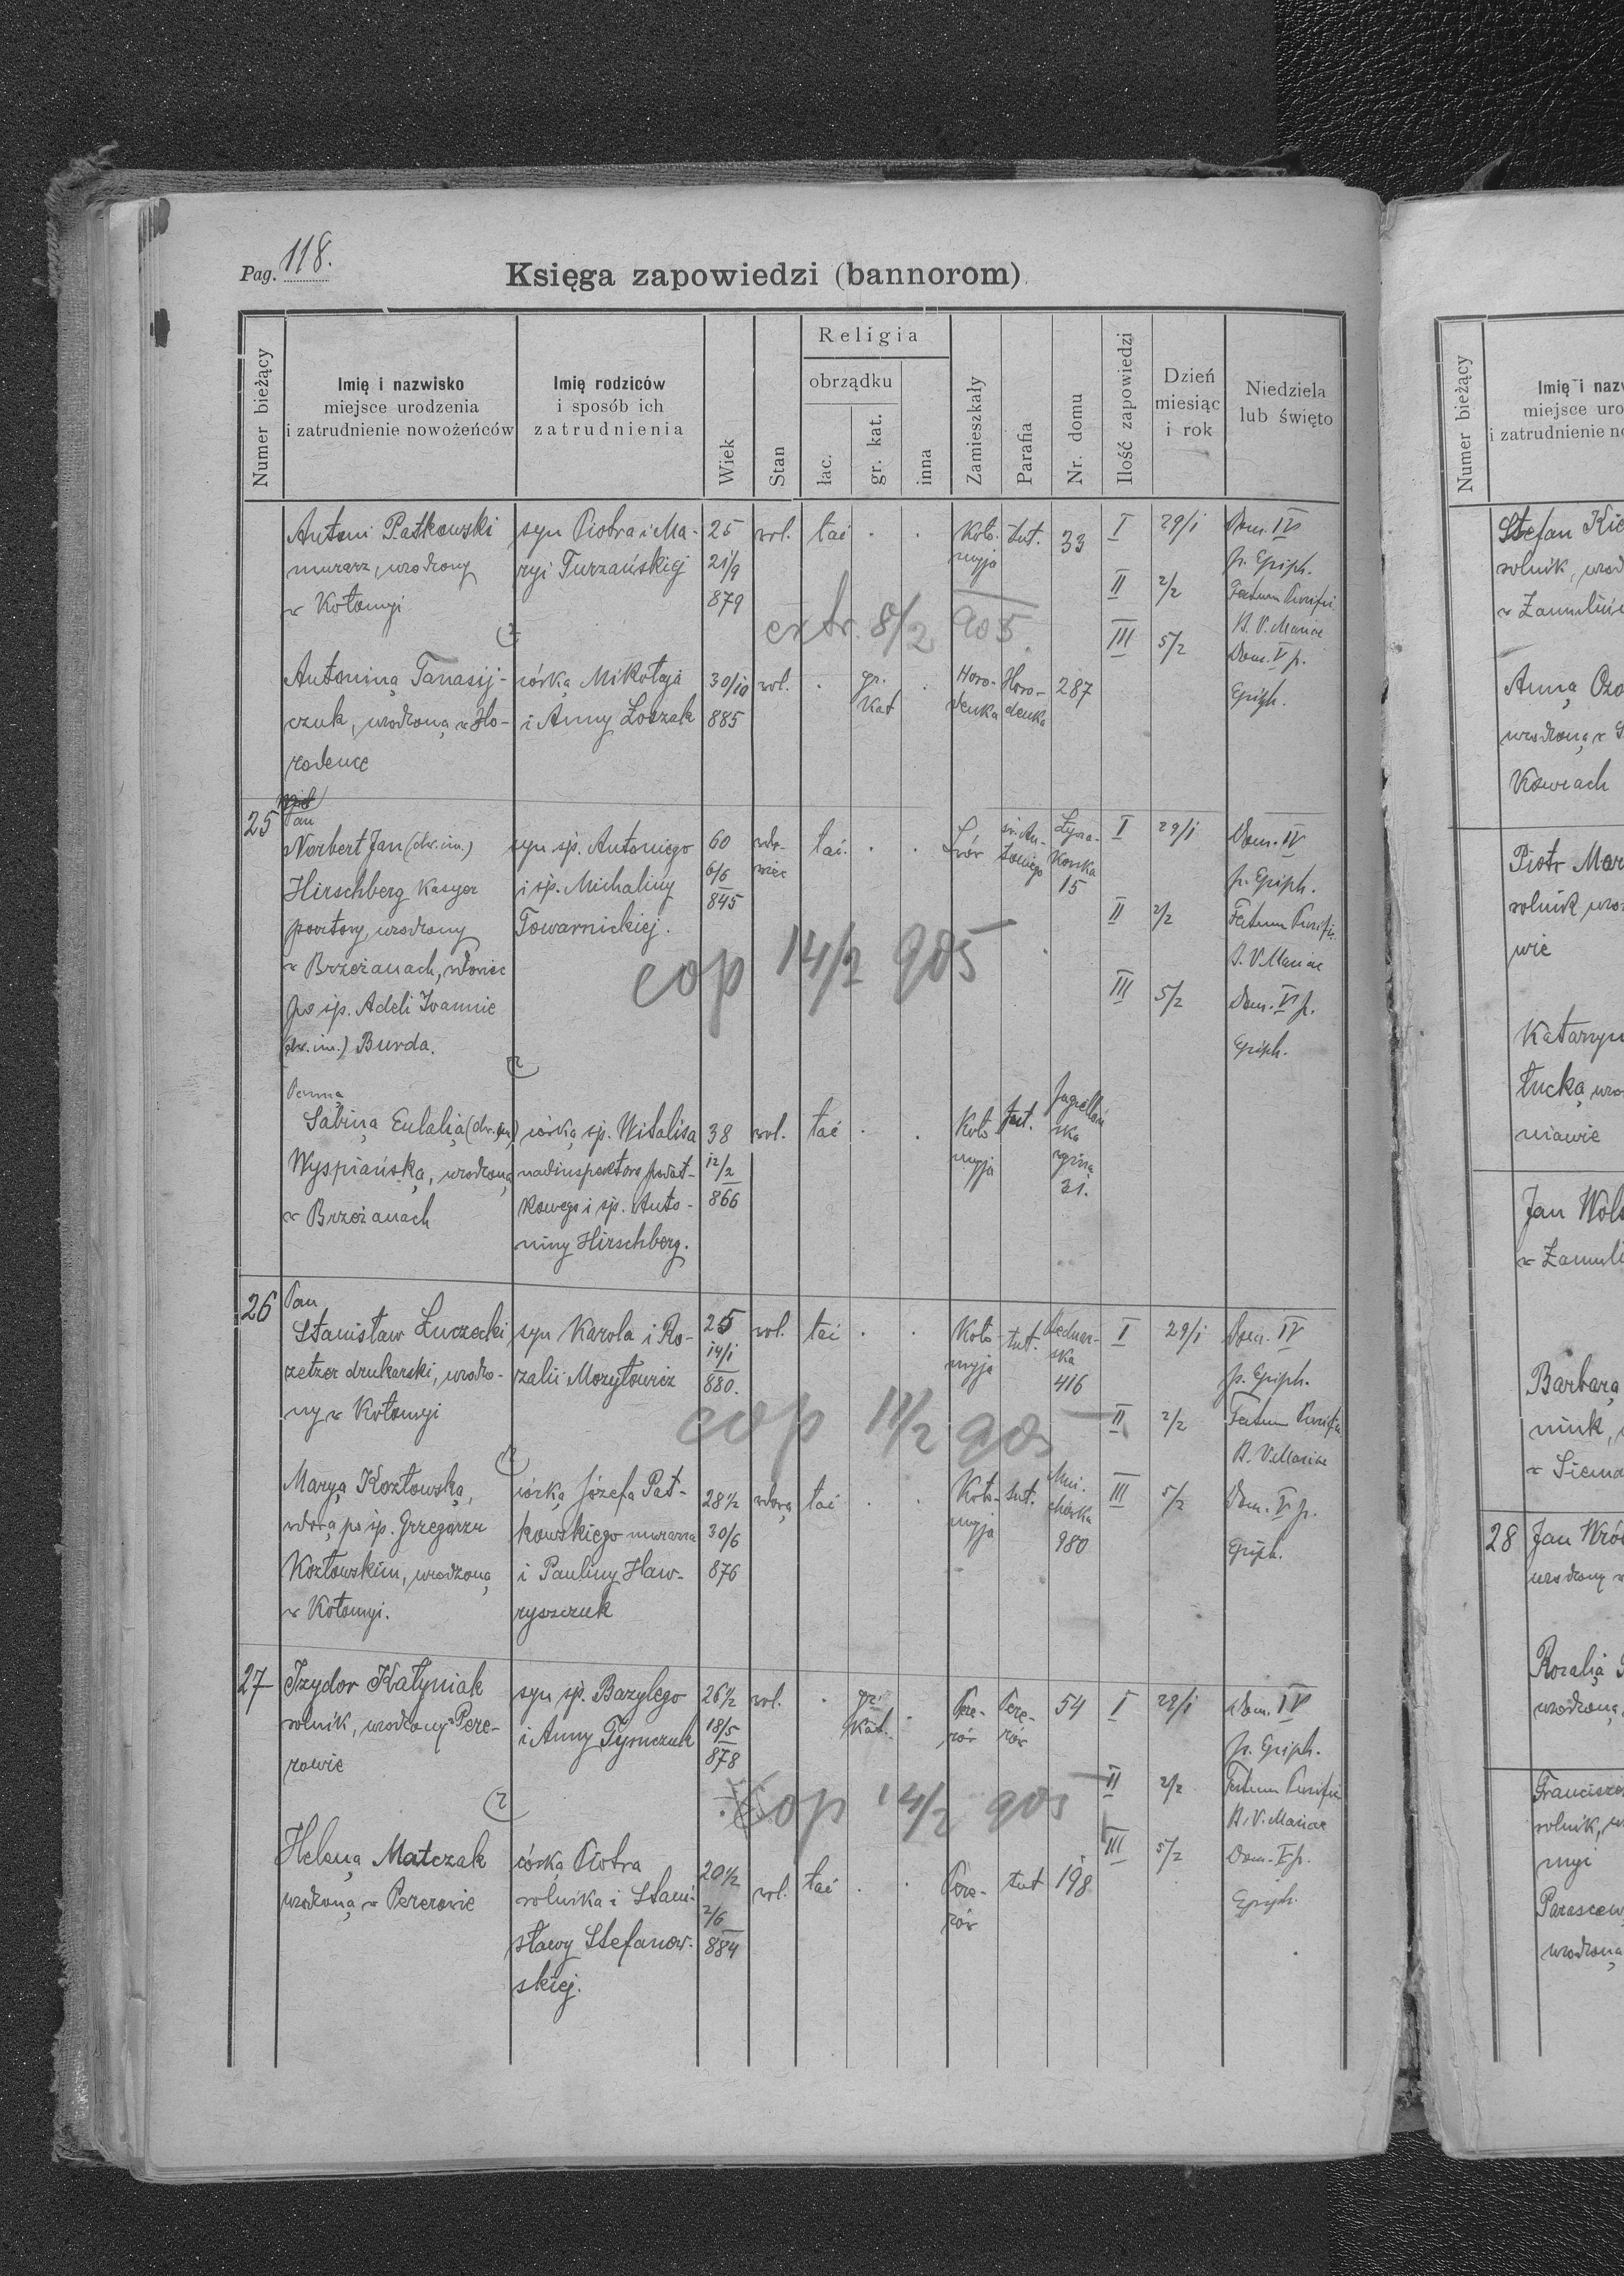 Pag. 118.
Księga zapowiedzi (bannorom)
Numer bieżący
Imię i nazwisko
miejsce urodzenia
i zatrudnienie nowożeńców
Imię rodziców
i sposób ich
zatrudnienia
Wiek
Stan
Religia
obrządku
łac.
gr. kat.
inna
Zamieszkały
Parafia
Nr. domu
Ilość zapowiedzi
Dzień
miesiąc
i rok
Niedziela
lub święto
Antoni Patkowski
murarz, urodzony
w Kołomyi
syn Piotra i Ma-
ryi Turzańskiej
25
21/9
879
wol.
łać
Koło-
myja
tut.
33
I 29/1 Dom. IV
p. Epiph.
II 2/2 Festum Purific
B. V. Mariae
III 5/2 Dom. V p.
Epiph.
extr. 8/2 905
Antonina Tanasij-
czuk, urodzona w Ho-
rodence
córka Mikołaja
i Anny Łoszak
30/10
885
wol.
gr.
Kat
Horo-
denka
Horo-
denka
287
25
Pan
Norbert Jan (dw. im.)
Hirschberg Kasyer
pocztowy, urodzony
w Brzeżanach, wdowiec
po śp. Adeli Joannie
(dw. im.) Burda.
syn śp. Antoniego
i śp. Michaliny
Towarnickiej.
60
6/6
845
wdo-
wiec
łać.
Lwów
św. An-
toniego
Łycza-
kowska
15
I 29/1 Dom. IV
p. Epiph.
II 2/2 Festum Purific
B. V. Mariae
III 5/2 Dom. V p.
Epiph.
cop 14/2 905
Panna
Sabina Eulalia (dw. im.)
Wyspiańska, urodzona
w Brzeżanach
córka śp. Witalisa
nadinspektora podat-
kowego i śp. Anto-
niny Hirschberg.
38
12/2
866
wol.
łać
Koło
myja
tut.
Jagielloń
ska
31.
26
Pan
Stanisław Łuczecki
zetzer drukarski, urodzo-
ny w Kołomyi
syn Karola i Ro-
zalii Mozyłowicz
25
14/1
880.
wol.
łać
Koło
myja
tut.
ska
416
I 29/1 Dom. IV
p. Epiph.
II 2/2 Festum Purific
B. V. Mariae
III 5/2 Dom. V p.
Epiph.
cop 11/2 905
Marya Kozłowska,
wdowa po śp. Grzegorzu
Kozłowskim, urodzona
w Kołomyi.
córka Józefa Pat-
kowskiego murarza
i Pauliny Haw-
ryszczuk
28 1/2
30/6
876
wdowa
łać
Koło-
myja
tut.
980
27
Izydor Kałyniak
rolnik, urodzony w Pere-
rowie
syn śp. Bazylego
i Anny Tymczuk
26 1/2
18/5
878
wol.
gr.
Kat.
Pere-
rów
Pere-
rów
54
I 29/1 Dom. IV
p. Epiph.
II 2/2 Festum Purific
B. V. Mariae
III 5/2 Dom. V p.
Epiph.
cop 14/2 905
Helena Matczak
urodzona w Pererowie
córka Piotra
rolnika i Stani-
sławy Stefanow-
skiej.
20 1/2
2/6
884
wol.
łać
Pere-
rów
tut
198
Numer bieżący
Imię i naz
miejsce uro
i zatrudnienie no
Stefan
rolnik, urod
Anna
Kowcach
Piotr Mar
rolnik, uro
wie
Katarzyn
łucka, uro
niawie
Jan
Barbara
28
Jan
urodzony
Rozalia
urodzona
Francisze
rolnik, u
myi
urodzona